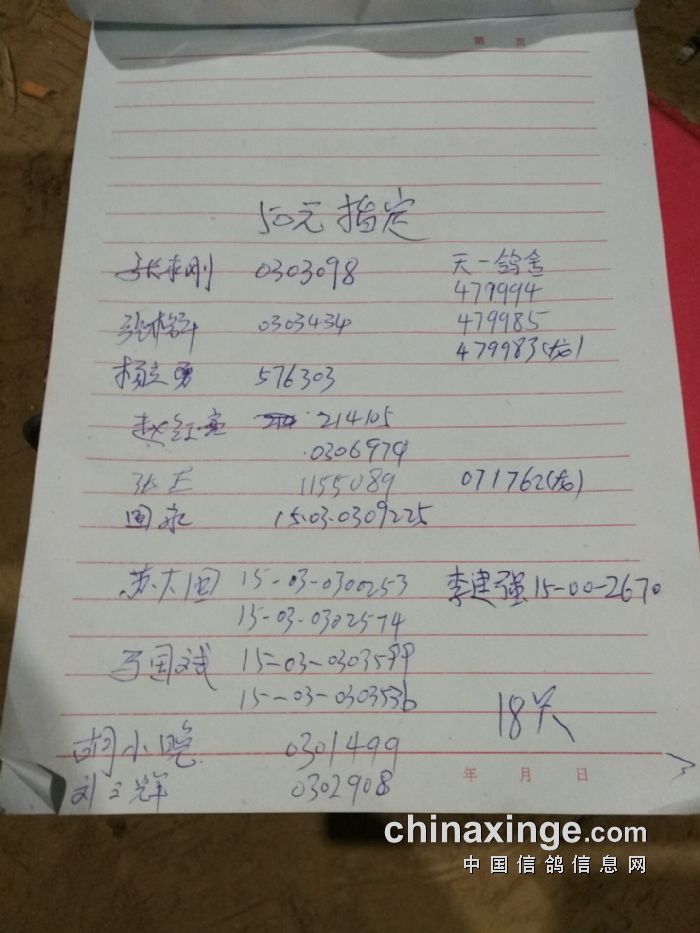 第 页
50元指定
张来刚 0303098 天一鸽舍
479994
479985
0303434
479983(龙)
杨立勇 576303
赵红亮 214105
0306974
张正 1155089 071762(龙)
国永 15-03-0309225
苏大国 15-03-0300253 李建强15-00-2670
15-03-0302574
马国斌 15-03-0303599
15-03-0303536
18关
胡小晓 0301499
年 月 日
刘立辉 0302908
chinaxinge.com
中国信鸽信息网